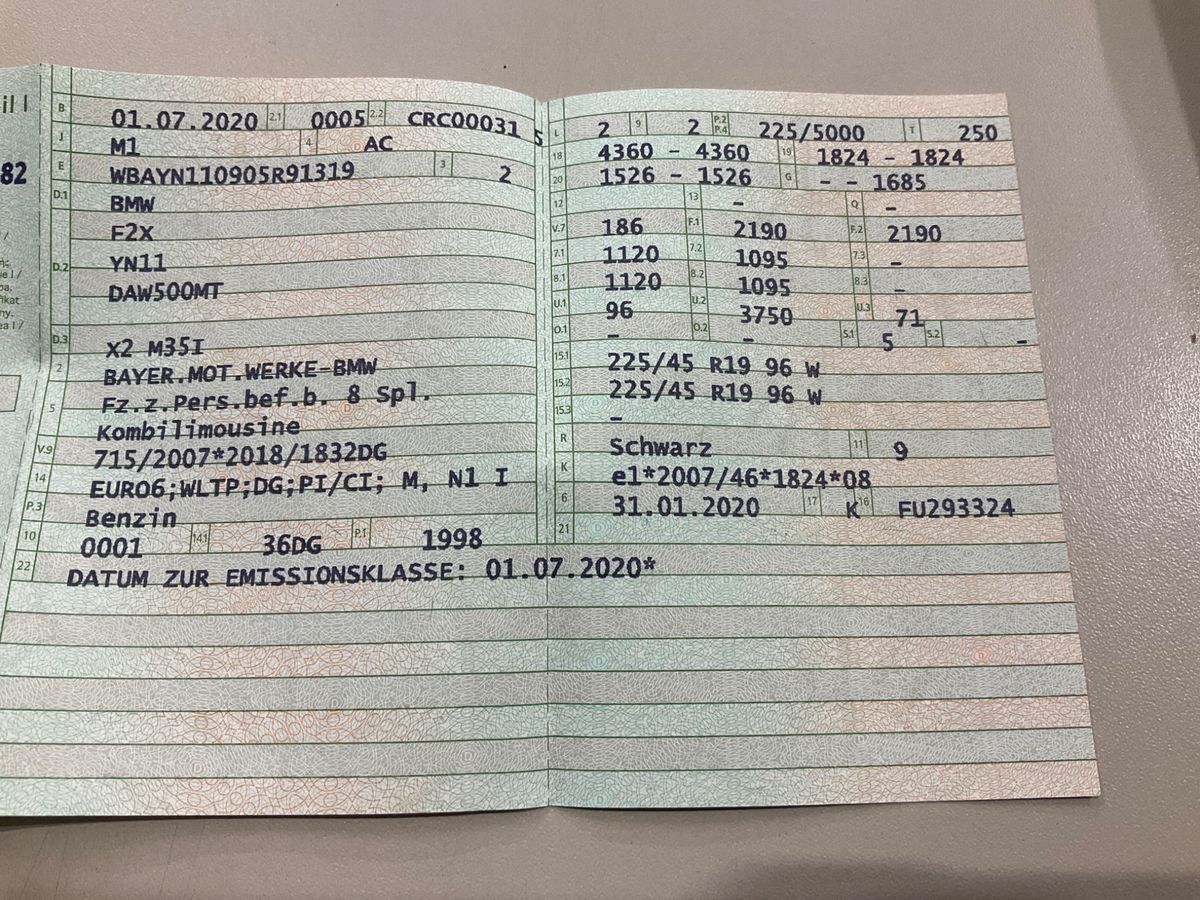 il I
82
B 01.07.2020 2.1 0005 2.2 CRC00031 5
J M1 4 AC
E WBAYN110905R91319 3 2
D.1 BMW
F2X
D.2 YN11
DAW500MT
D.3 X2 M35I
2 BAYER.MOT.WERKE-BMW
5 Fz.z.Pers.bef.b. 8 Spl.
Kombilimousine
V.9 715/2007*2018/1832DG
14 EURO6;WLTP;DG;PI/CI; M, N1 I
P.3 Benzin
10 0001 14.1 36DG P.1 1998
22 DATUM ZUR EMISSIONSKLASSE: 01.07.2020*
L 2 9 2 P.2 P.4 225/5000 T 250
18 4360 - 4360 19 1824 - 1824
20 1526 - 1526 G - - 1685
12 13 - Q -
V.7 186 F.1 2190 F.2 2190
7.1 1120 7.2 1095 7.3 -
8.1 1120 8.2 1095 8.3 -
U.1 96 U.2 3750 U.3 71
O.1 - O.2 - S.1 5 S.2 -
15.1 225/45 R19 96 W
15.2 225/45 R19 96 W
15.3 -
R Schwarz 11 9
K e1*2007/46*1824*08
6 31.01.2020 17 K 16 FU293324
21